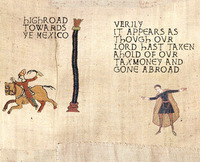 HIGHROAD
TOWARDS
YE MEXICO
VERILY
IT APPEARS AS
THOUGH OUR
LORD HAST TAKEN
AHOLD OF OUR
TAXMONEY AND
GONE ABROAD